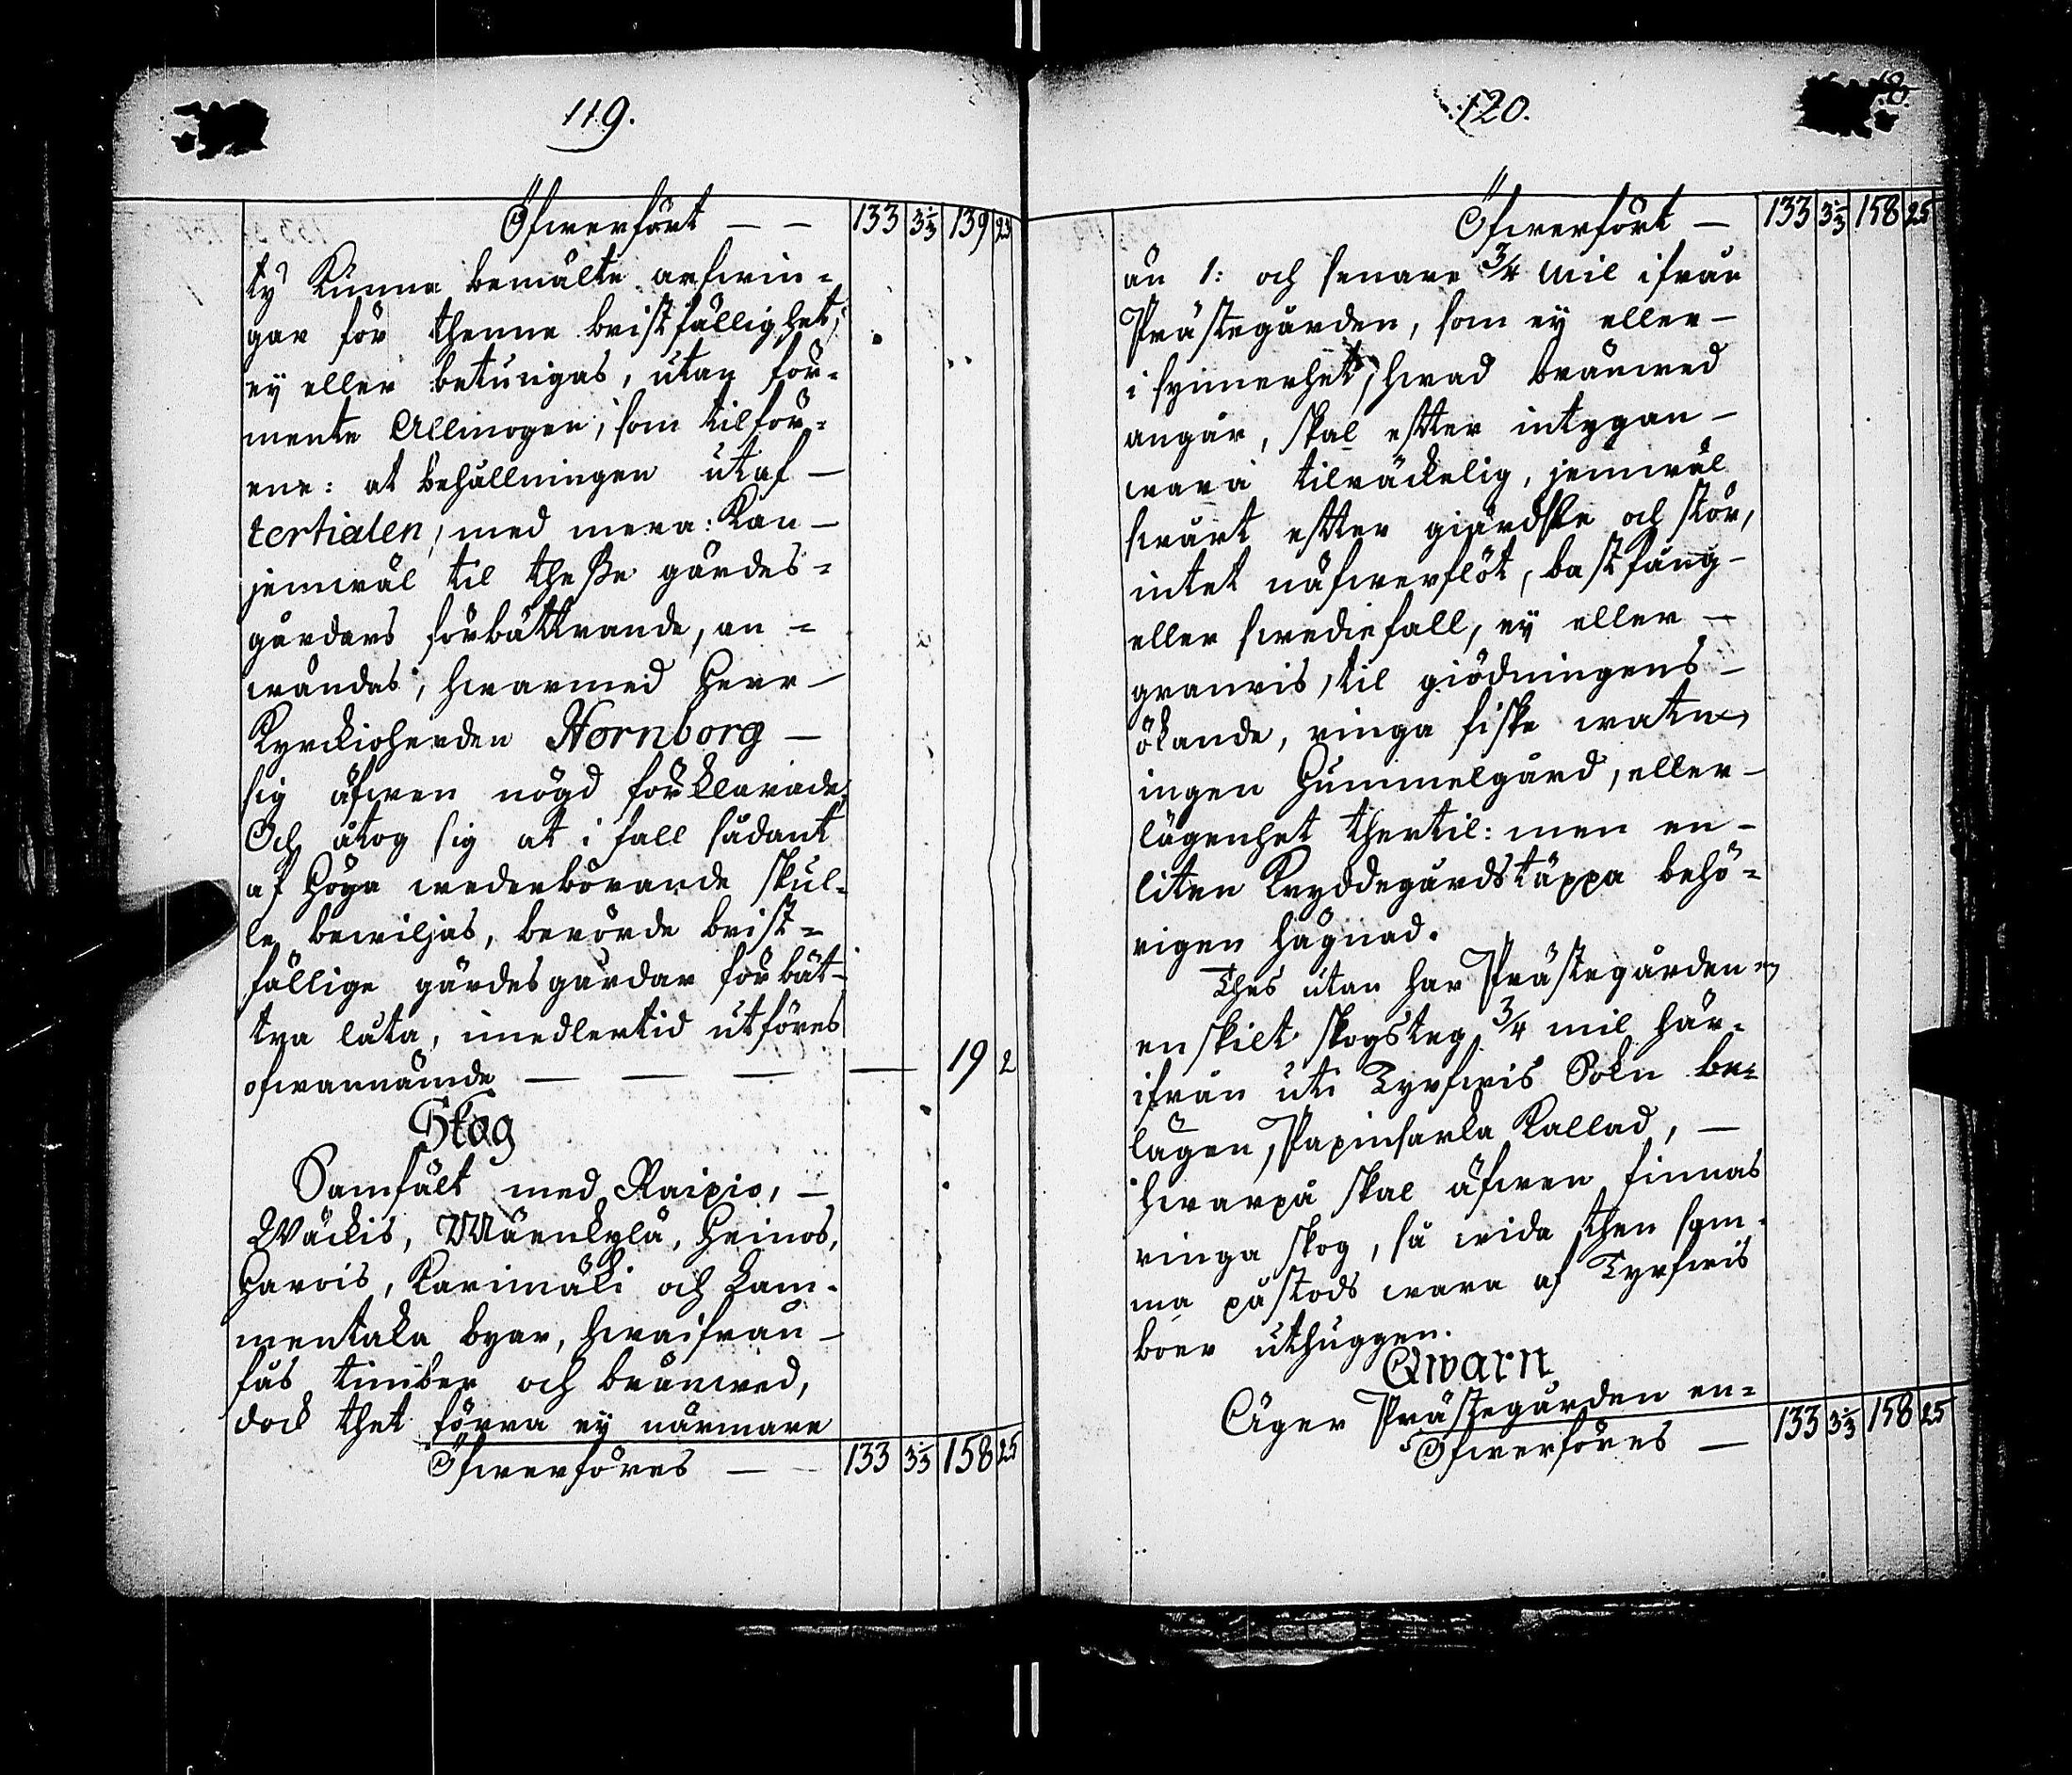 119.
Öfwerfört — — 133 3⅓ 139 23
ty Kunna bemälte arfwin=
gar för thenne bristfällighet;
ey eller betungas, utan för=
mente Allmogen; som tilför=
ene: at behållningen utaf —
tertialen; med mera: Kan —
jemwäl til theße gärdes=
gårdars förbättrande, an =
wändas; hwarmed Herr —
Kyrckioherden Hornborg —
sig äfwen nögd förklarade,
Och åtog sig at i fall sådant
af Höga wederbörande skul=
le bewiljas, berörde brist=
fällige gärdesgårdar förbät=
tra låta, imedlertid utföres
ofwannämde — — — — 19 2
Skog
Samfält med Raipio, —
Wäckis, Mäenkylä, Heinos,
Harois, Karimäki och Lam=
mentaka byar, hwarifrån —
fås timber och bränwed,
dock thet förra ey närmare
Öfwerföres — — 133 3⅓ 158 25
120.
18.
Öfwerfört — 133 3⅓ 158 25
än 1: och senare ¾ mil ifrån
Prästegården, som ey eller —
i synnerhet, hwad bränwed
angår, skal efter intygan —
wara tilräckelig, jemwäl
swårt efter giärdsle och stör,
intet näfwerflöt, bastfång —
eller swediefall, ey eller —
granris, til giödningens —
ökande, ringa fiske watn,
ingen Hummelgård, eller —
lägenhet thertil: men en —
liten Kryddegårdstäppa behö=
rigen hägnad.
Thes utan har Prästegården
enskilt skogsteg ¾ mil här=
ifrån uti Tyrfwis Sokn be=
lägen, Papinsarka Kallad, —
hwarpå skal äfwen finnas
ringa skog, så wida then sam=
ma påstods wara af Tyrfwis
boer uthuggen.
Qwarn
Äger Prästegården en=
Öfwerföres — 133 3⅓ 158 25